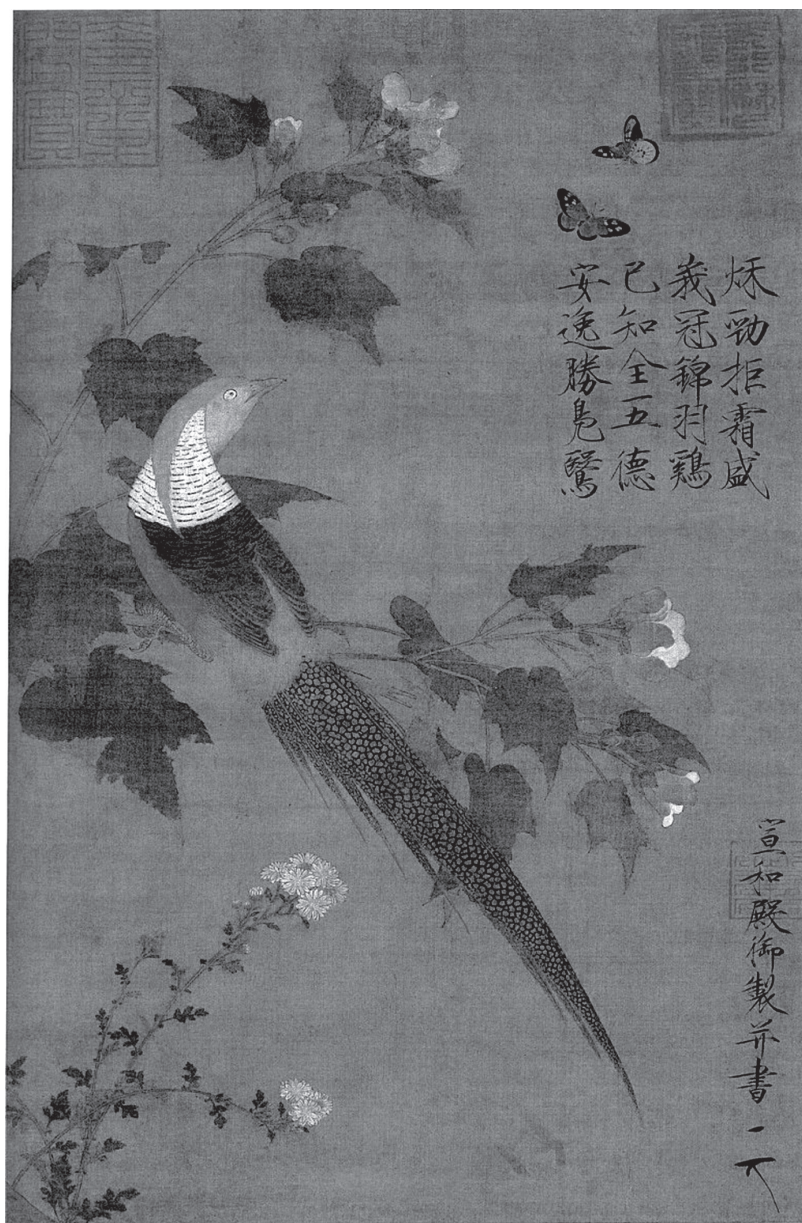 秌勁拒霜盛
峩冠錦羽鷄
已知全五德
安逸勝鳧鷖
宣和殿御製并書